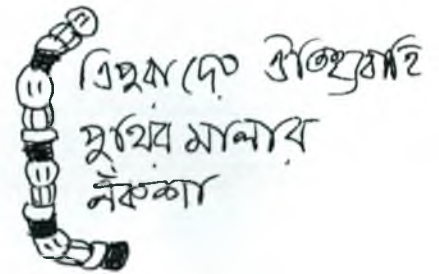 ত্রিপুরাদের ঐতিহ্যবাহি
পুথির মালার
নঁকশা